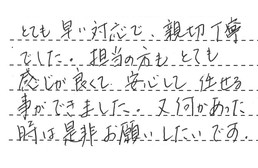 とても早い対応で、親切丁寧
でした。担当の方もとても
感じが良くて安心して任せる
事ができました。又何かあった
時は是非お願いしたいです。